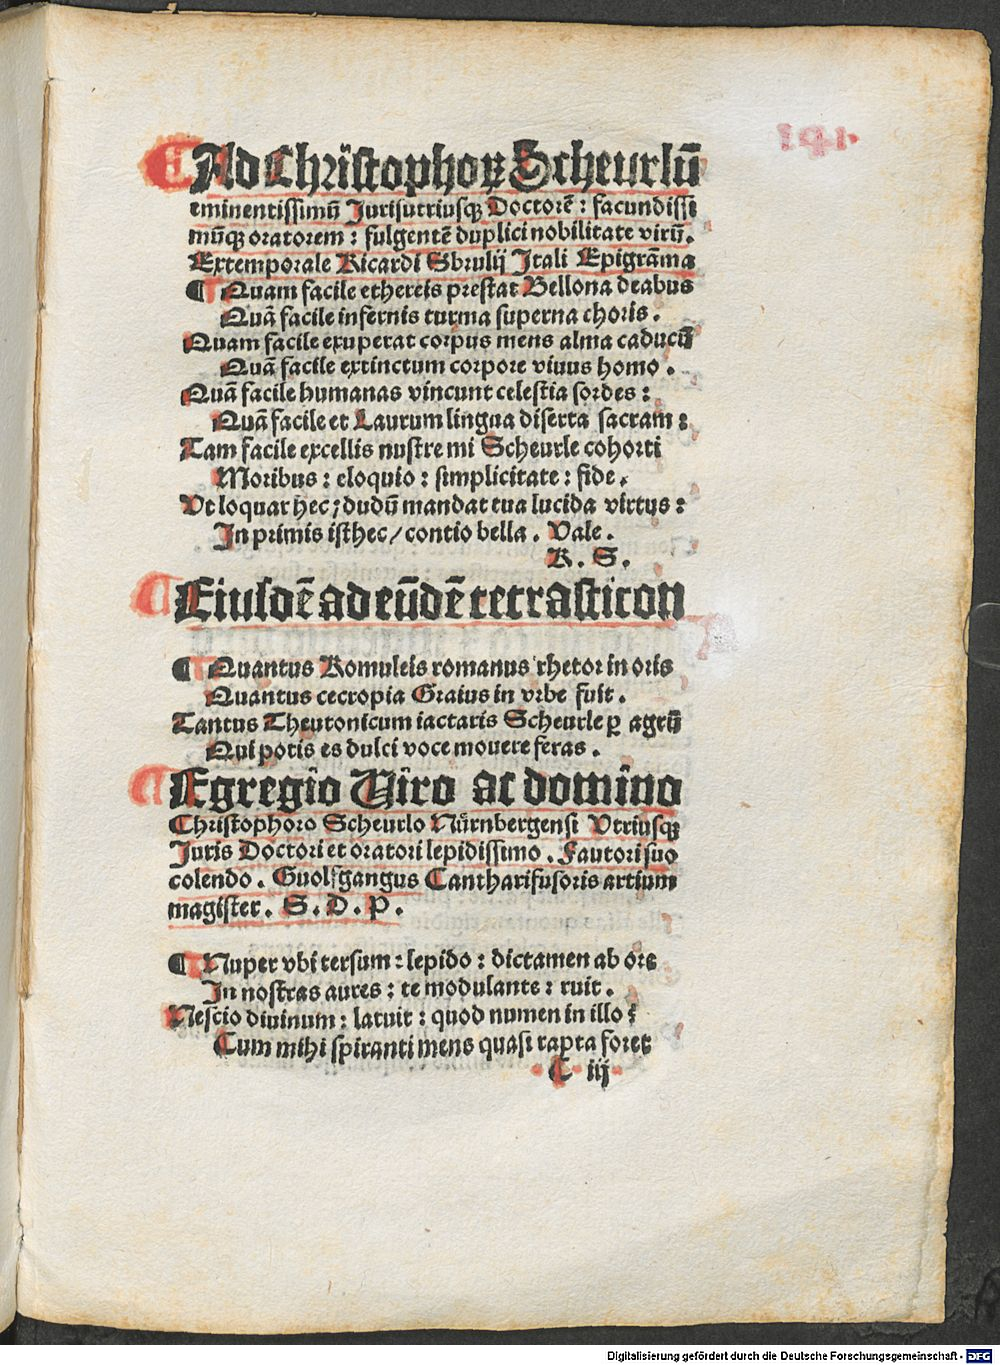 191.
Ad Christophoꝝ Scheurlū
eminentissimū Jurisutriusqꝫ Doctorē : facundissi
mūqꝫ oratorem : fulgentē duplici nobilitate virū.
Extemporale Ricardi Sbrulij Itali Epigrāma
¶ Quam facile ethereis prestat Bellona deabus
Quā facile infernis turma superna choris .
Quam facile exuperat corpus mens alma caducū
Quā facile extinctum corpore viuus homo .
Quā facile humanas vincunt celestia sordes :
Quā facile et Laurum lingua diserta sacram :
Tam facile excellis nustre mi Scheurle cohorti
Moribus : eloquio : simplicitate : fide .
Vt loquar hec ; dudū mandat tua lucida virtus :
In primis isthec / contio bella . Vale .
R. S.
Eiusdē ad eūdē tetrasticon
¶ Quantus Romuleis romanus rhetor in oris
Quantus cecropia Graius in vrbe fuit .
Tantus Theutonicum iactaris Scheurle ꝑ agrū
Qui potis es dulci voce mouere feras .
Egregio Viro ac domino
Christophoro Scheurlo Nürnbergensi Vtriusqꝫ
Juris Doctori et oratori lepidissimo . Fautori suo
colendo . Guolfgangus Cantharifusoris artium
magister . S. D. P.
¶ Nuper vbi tersum : lepido : dictamen ab ore
In nostras aures : te modulante : ruit .
Nescio diuinum : latuit : quod numen in illo :
Cum mihi spiranti mens quasi rapta foret
C iij
Digitalisierung gefördert durch die Deutsche Forschungsgemeinschaft - DFG